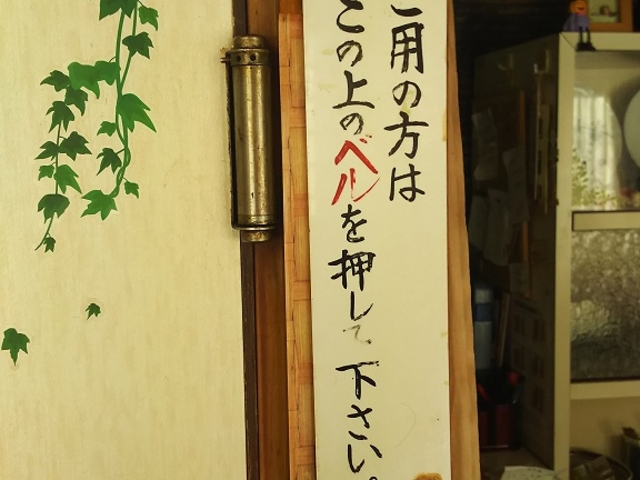 ご用の方は
この上のベルを押して下さい。